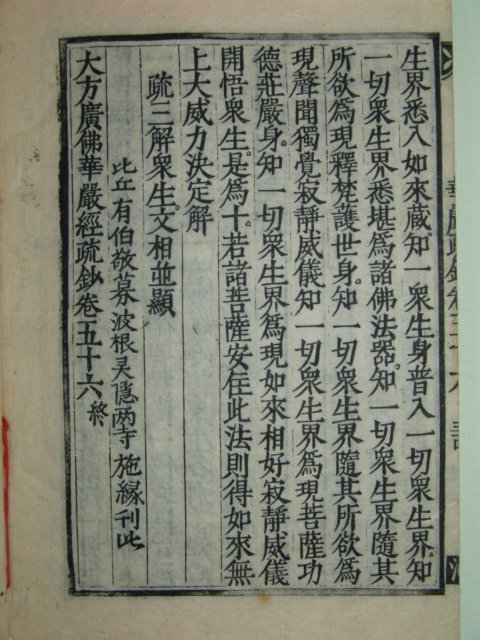 生界悉入如來藏知一衆生身普入一切衆生界知
一切衆生界悉堪爲諸佛法器知一切衆生界隨其
所欲爲現釋梵護世身知一切衆生界隨其所欲爲
現聲聞獨覺寂靜威儀知一切衆生界爲現菩薩功
德莊嚴身知一切衆生界爲現如來相好寂靜威儀
開悟衆生是爲十若諸菩薩安住此法則得如來無
上大威力決定解
疏三解衆生文相並顯
比丘有伯敬募波根灵隱两寺施緣刊此
大方廣佛華嚴經疏鈔卷五十六 終